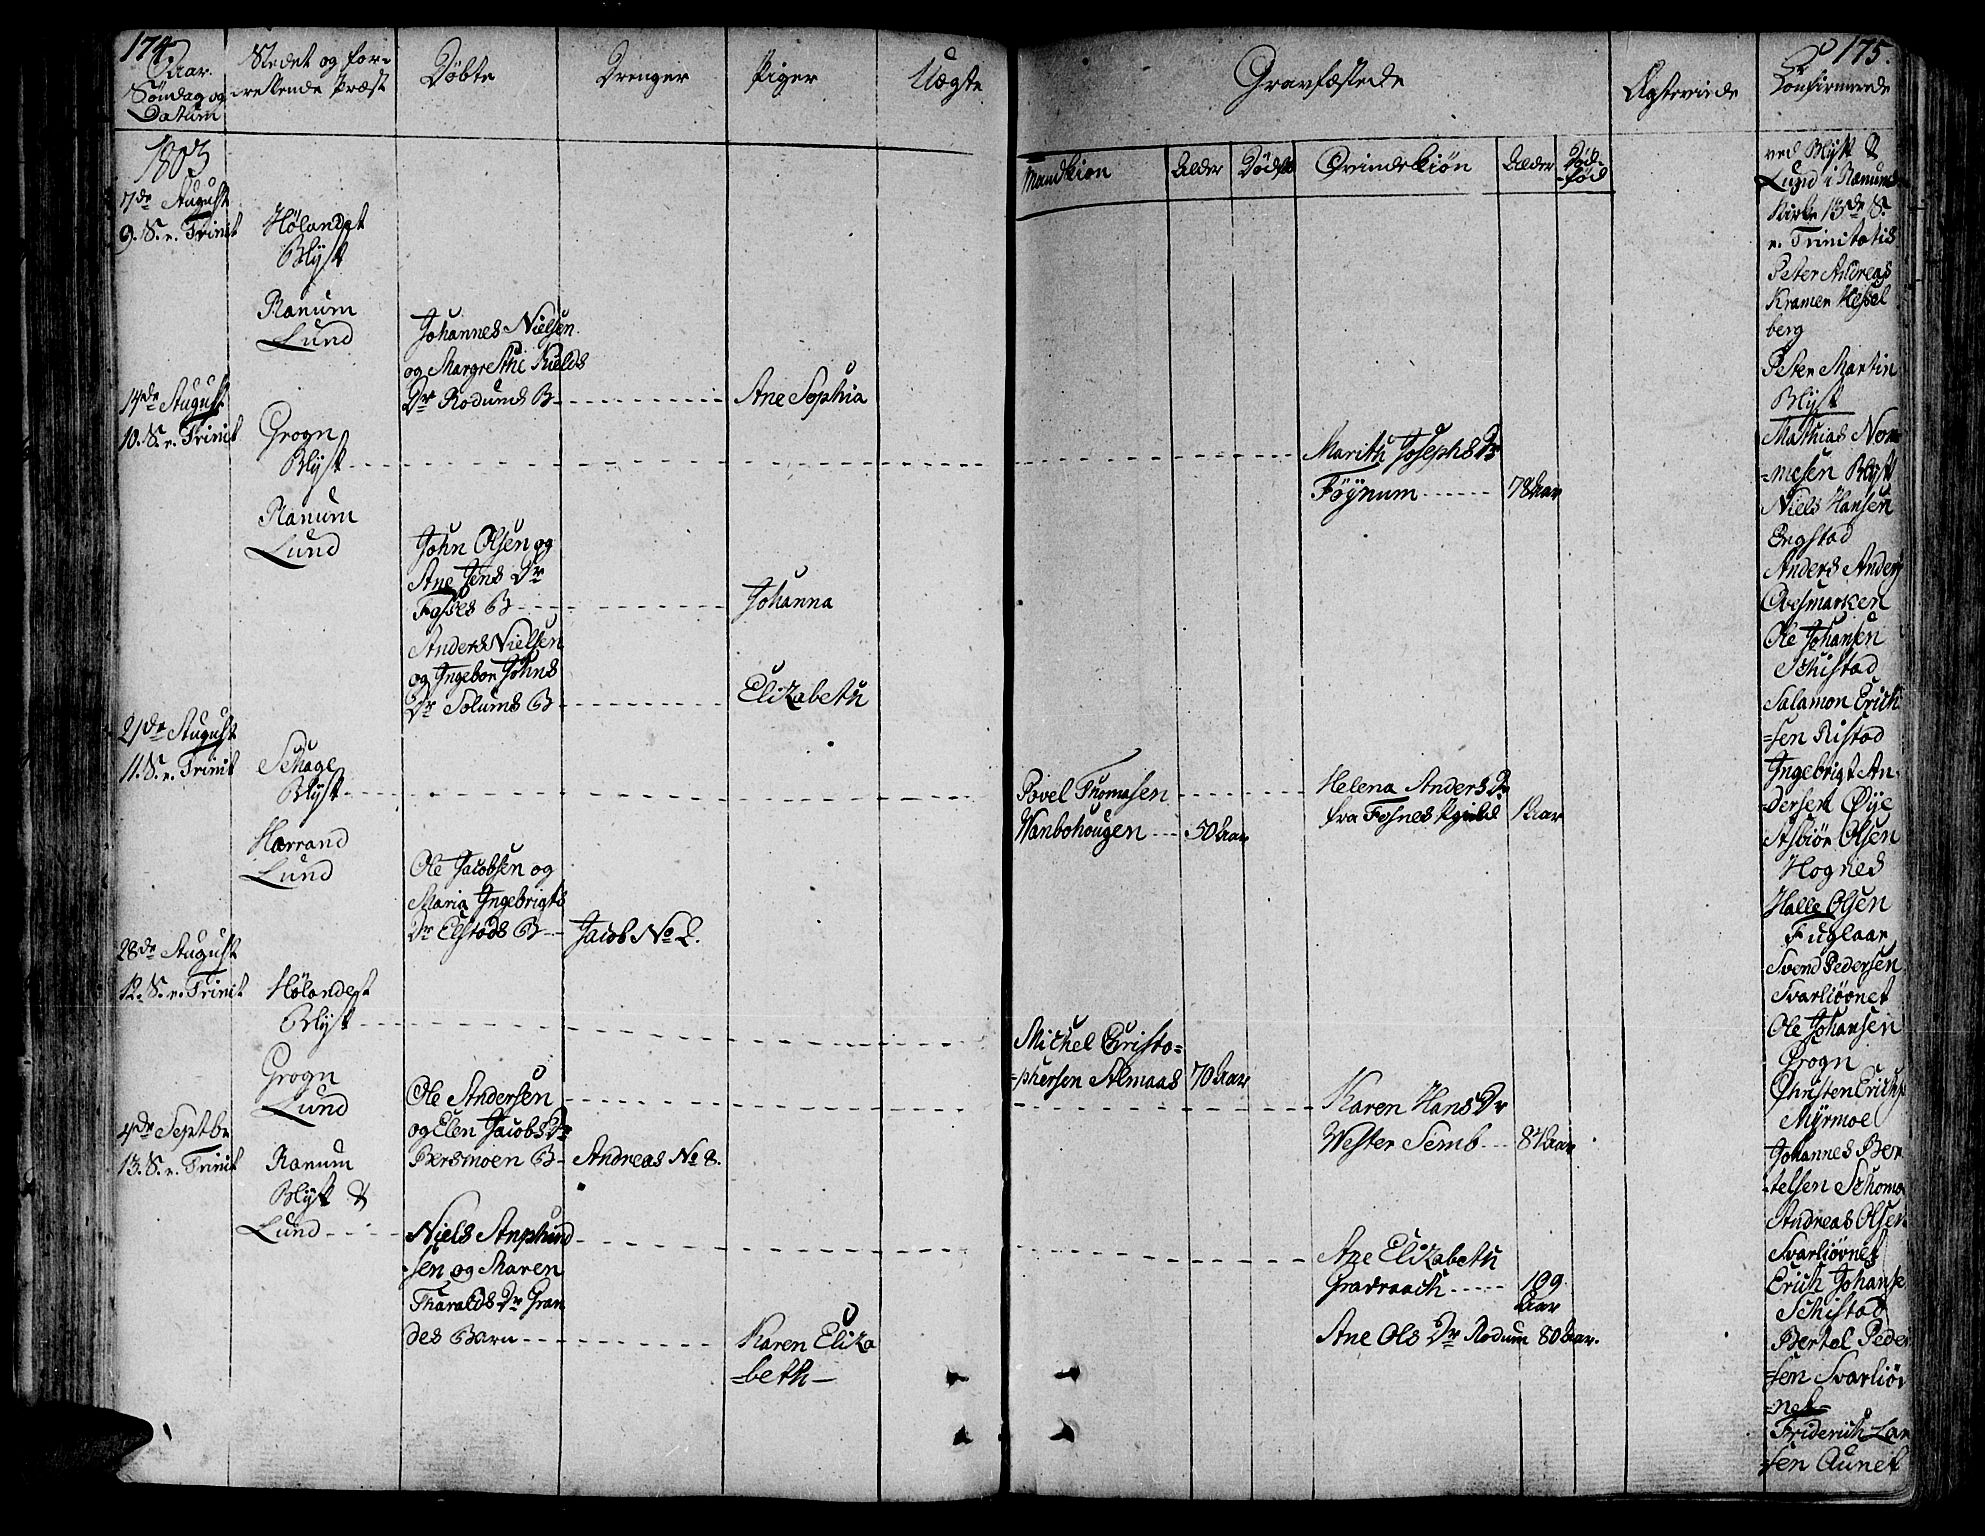 174
Aar
Søndag og
Datum
Stedet og for-
rettende Præst
Døbte
Drenger
Piger
Uægte
1803
7de August
9. S. e. Trinit
Hølandet
Blyst
Ranum
Lund
Johannes Nielsen
og Margrethe Kields
Dr Rodums B
Ane Sophia
14de August
10. S. e. Trinit
Grogn
Blyst
Ranum
Lund
John Olsen og
Ane Jens Dr
Fosses B
Johanna
Anders Nielsen
og Ingebor Johns
Dr Solums B
Elizabeth
21de August
11. S. e. Trinit
Schage
Blyst
Harrand
Lund
Ole Jacobsen og
Maria Ingebrigts
Dr Elstads B
Jacob No 2.
28de August
12. S. e. Trinit
Hølandet
Blyst
Grogn
Lund
Ole Andersen
og Elen Jacobs Dr
Bersmoen B
Andreas No 8.
4de Septbr
13. S. e. Trinit
Ranum
Blyst &
Lund
Niels Amphind
sen og Maren
Tharalds Dr Gran
des Barn
Karen Eliza
=beth
175.
Gravfæstede
Ægteviede
Confirmerede
Mandkiøn
Alder
Dødf
Qvindekiøn
Alder
Død-
fød
Marith Josephs Dr
Føÿnum
78 Aar
Povel Thomasen
Wanbohougen
50 Aar
Helena Anders Dr
fra Fosnes Pgield
1 Aar
Michel Christo=
=phersen Almaas
70 Aar
Karen Hans Dr
Wester Semb
84 Aar
Ane Elizabeth
Gradraach
109
Aar
Ane Ols Dr Rodum 80 Aar.
ved Blyst &
Lund i Ranum
Kirke 13de S.
e. Trinitatis
Peter Andreas
Kramer Hessel
berg
Peter Martin
Blyst
Mathias Nom
=mesen Blyst
Niels Hansen
Engstad
Anders Anders
Ovesmarken
Ole Johansen
Schistad
Salamon Erich
=sen Ristad
Ingebrigt An-
dersen Øye
Asbiør Olsen
Hognes
Halle Olsen
Fuglaar
Svend Pedersen
Svarliøvnet
Ole Johansen
Grogn
Christen Erichs
Myrmoe
Johannes Ber
telsen Schomo
Andreas Olsen
Svarliøvnet
Erich Johanse
Schistad
Bertel Peder
=sen Svarliøv
=net
Friderich Lar
sen Aunet